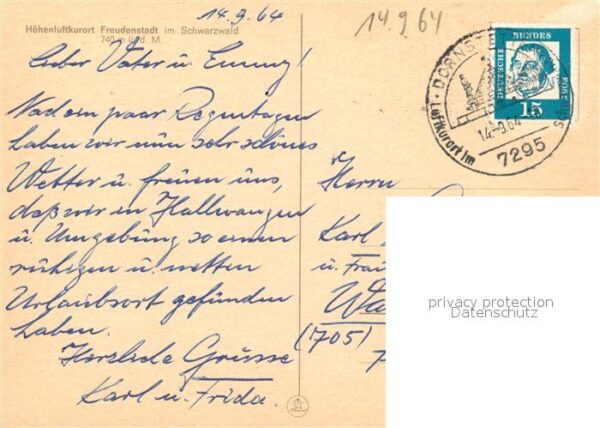 14.9.64
14.9.64
Höhenluftkurort Freudenstadt im Schwarzwald
740 m ü. d. M.
Lieber Vater u. Emmy!
Nach ein paar Regentagen
haben wir nun sehr schönes
Wetter u. freuen uns,
daß wir in Hallwangen
u. Umgebung so einen
ruhigen u. netten
Urlaubsort gefunden
haben.
Herzliche Grüsse
Karl u. Frida.
DEUTSCHE BUNDESPOST
15
Luftkurort im
14.-9.64
7295
Herrn
Karl
u. Frau
(705)
privacy protection
Datenschutz